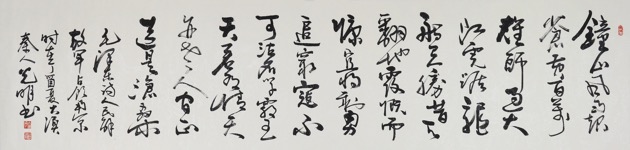 鐘山風雨起
蒼黄百萬
雄師過大
江虎踞龍
盤今勝昔天
翻地覆慨而
慷宜將剩勇
追窮寇不
可沽名學霸王
天若有情天
亦老人間正
道是滄桑
毛澤東詩人民解
放軍占領南京
時在酉夏
秦人光明書